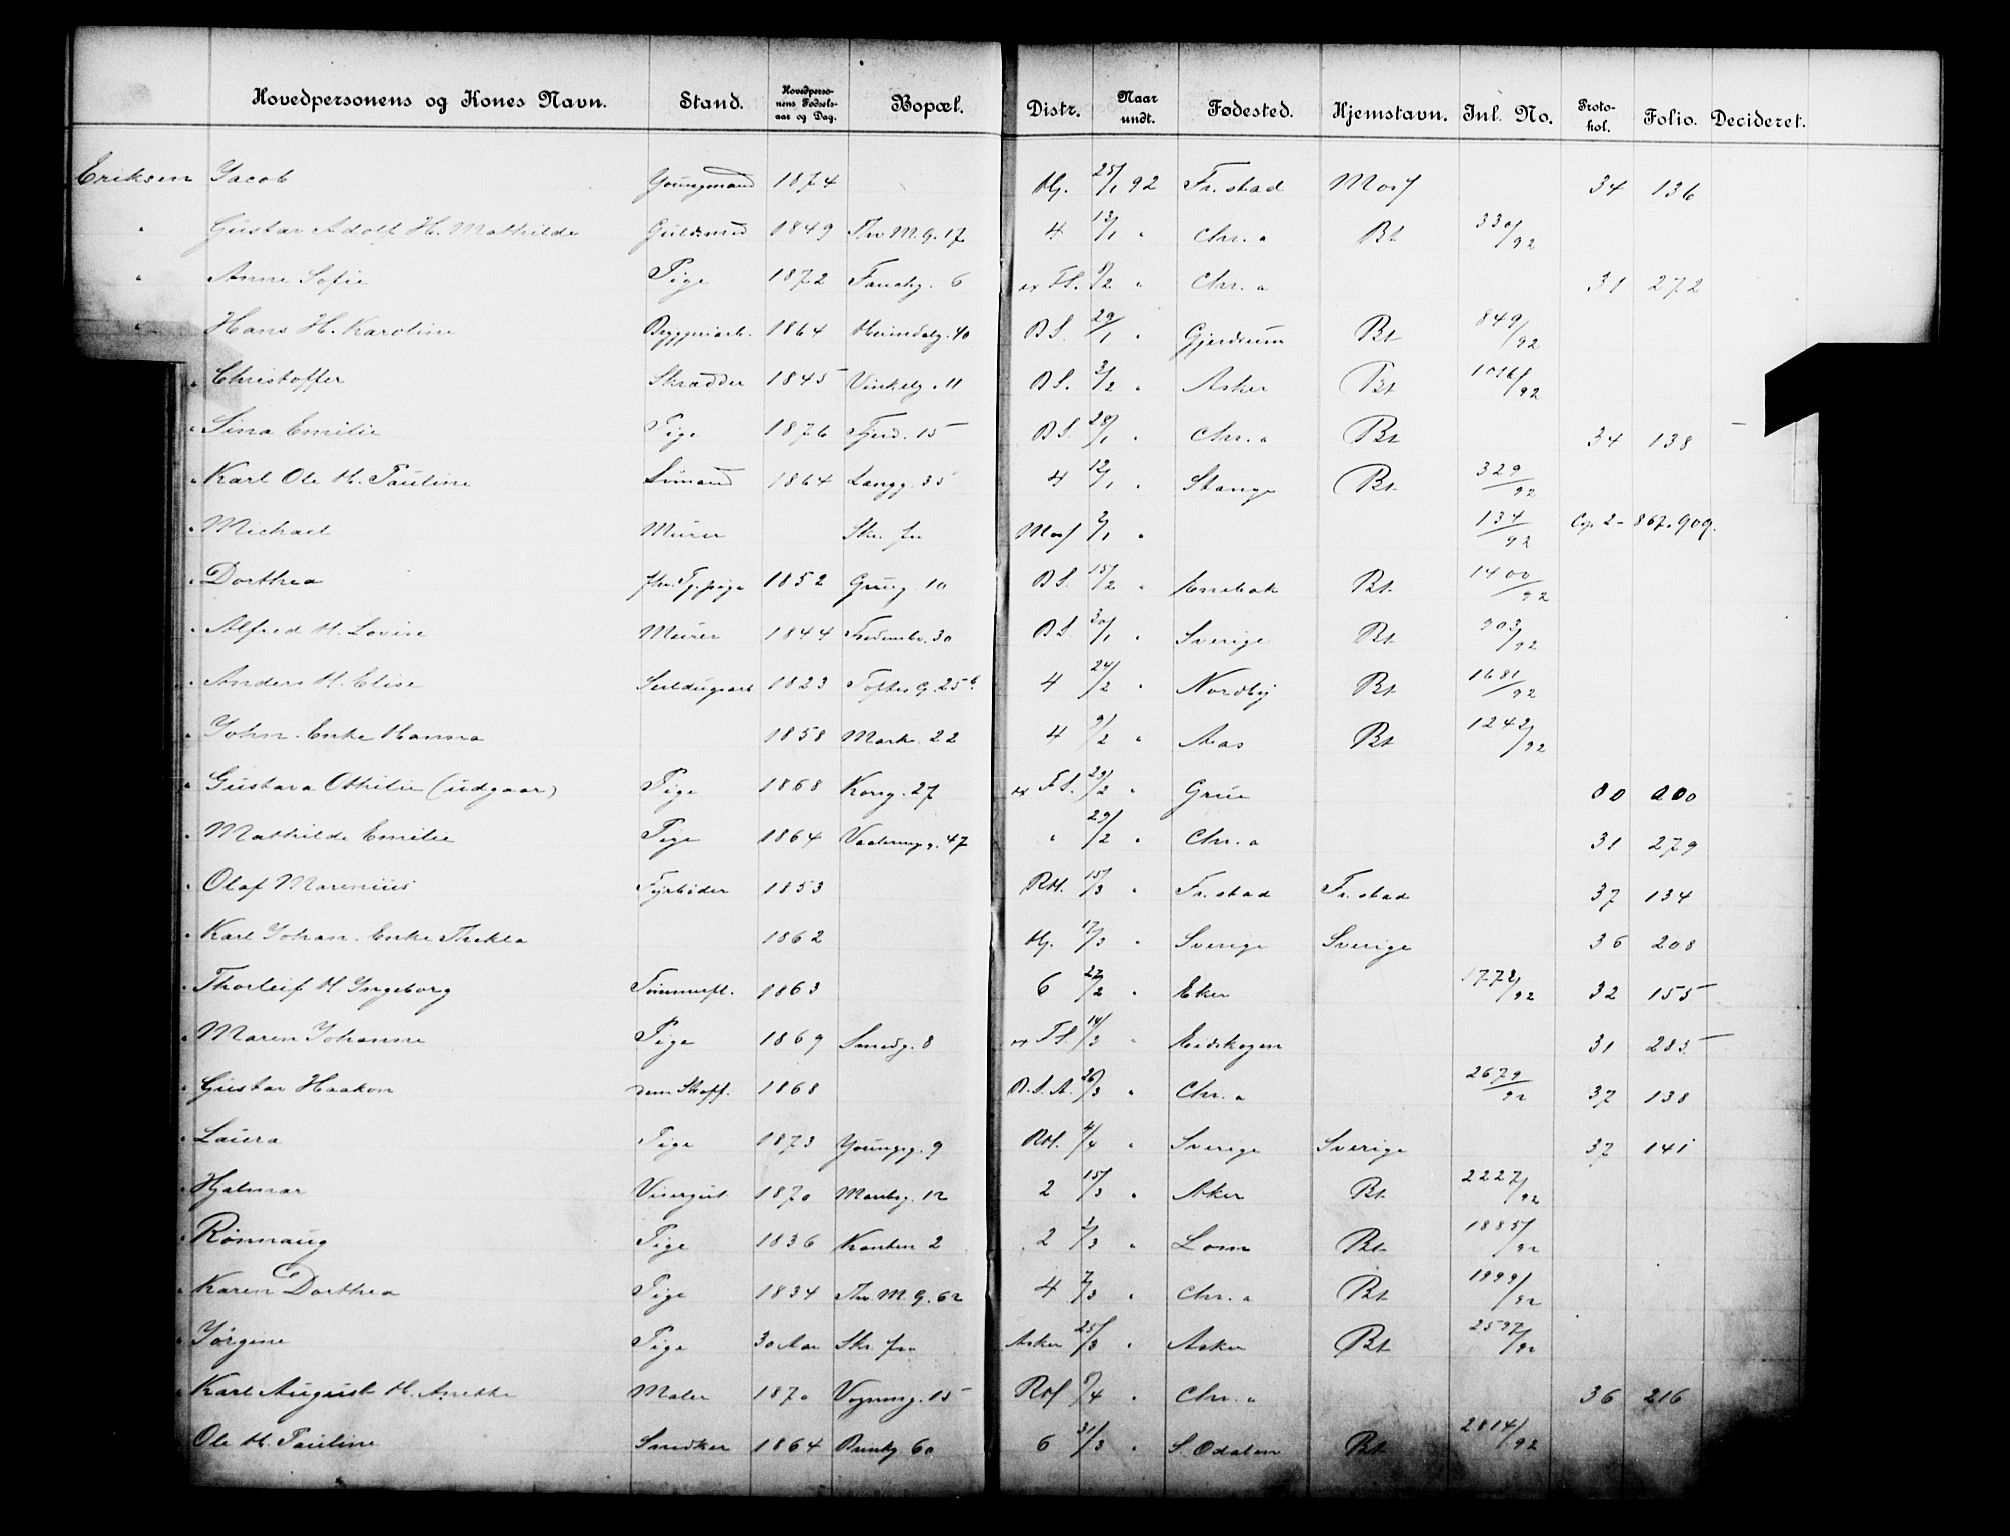 Hovedpersonens og Kones Navn. Stand. Hovedperso-nens Fødsels-aar og Dag. Bopæl. Distr. Naar undt. Fødested. Hjemstavn. Inl. No. Proto-kol. Folio. Decideret.
Eriksen Jacob Youngmand 1874 Hj. 25/1 92 Fr.stad Moss 34 136
" Gustav Adolf H. Mathilde Guldsmed 1849 Thv M.G. 17 4 13/1 " Chr.a Bt 330/92
" Anne Sofie Pige 1872 6 FS. /2 " Chr.a 31 272
" Hans H. Karoline Bryggeriarb. 1864 Heimdalg. 40 B S. 29/1 " Gjerdrum Bt 849/92
" Christoffer Skrædder 1845 Vinkelg. 11 B S. 3/2 " Asker Bt 1016/92
" Sina Emilie Pige 1876 Fjerd. 15 B S. 28/1 " Chr.a Bt 34 138
" Karl Ole H. Pauline Sømand 1864 Langg. 35 4 12/1 " Stange Bt 329/92
" Michael Murer Skr. fra Moss 2/1 " 134/92 Cop. 2 - 867. 909.
" Dorthea 1852 Grüng. 10 B S. 15/2 " Enebak Bt 1400/92
" Alfred H. Lovise Murer 1844 30 B S. 30/1 " Sverige Bt 903/92
" Anders H. Elise Seildugsarb 1823 Toftes G. 25 b. 4 24/2 " Nordby Bt 1681/92
" John. Enke Hanna 1858 Mark. 22 4 9/2 " Aas Bt 1242/92
" Gustava Othilie (udgaar) Pige 1868 Kong. 27 FS. 29/2 " Grue 00 200
" Mathilde Emilie Pige 1864 Vaalerengg. 47 " 29/2 " Chr.a 31 279
" Olaf Marenius Fyrbøder 1853 RH. 15/3 " Fr.stad Fr.stad 37 134
" Karl Johan. Enke Thekla 1862 Hj. 17/3 " Sverige Sverige 36 208
" Thorleif H. Ingeborg Tømmerfl. 1863 6 27/2 " Eker 1772/92 32 155
" Maren Johanne Pige 1869 Smedg. 8 FS. 14/3 " Eidskogen 31 285
" Gustav Haakon 1868 B.S.A. 26/3 " Chr.a 2679/92 37 138
" Laura Pige 1873 Youngsg. 9 RH. 4/4 " Sverige Sverige 37 141
" Hjalmar Visergut 1870 Maribog. 12 2 15/3 " Aker Bt 2227/92
" Rønnaug Pige 1836 Kanten 2 2 2/3 " Lom Bt 1885/92
" Karen Dorthea Pige 1834 Thv. M.G. 62 4 7/3 " Chr.a Bt 1999/92
" Jørgine Pige 30 Aar Skr. fra Asker 25/3 " Asker Bt 2597/92
" Karl August H. Anette Maler 1870 Vognmg. 15 RH /4 " Chr.a 36 216
Ole H. Pauline Snedker 1864 60 6 31/3 " S. Odalen Bt 2814/92